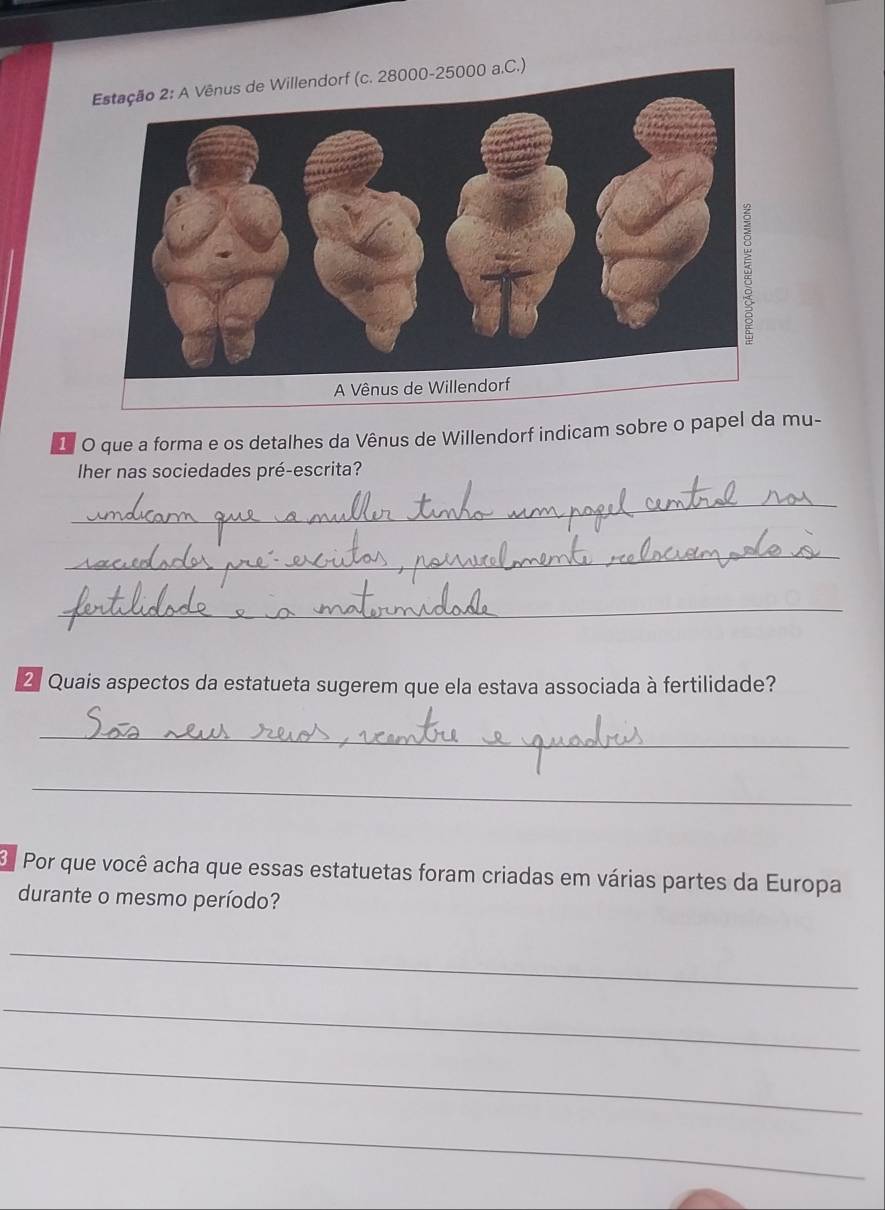 Estação 2: A Vênus de Willendorf (c. 28000-25000 a.C.)
REPRODUÇÃO/CREATIVE COMMONS
A Vênus de Willendorf
1 O que a forma e os detalhes da Vênus de Willendorf indicam sobre o papel da mu-
lher nas sociedades pré-escrita?
indicam que a muller tinha um papel central nas
sociedades pré-escritas, possivelmente relacionado à
fertilidade e a maternidade
2 Quais aspectos da estatueta sugerem que ela estava associada à fertilidade?
São seus seios, ventre e quadris
3 Por que você acha que essas estatuetas foram criadas em várias partes da Europa
durante o mesmo período?